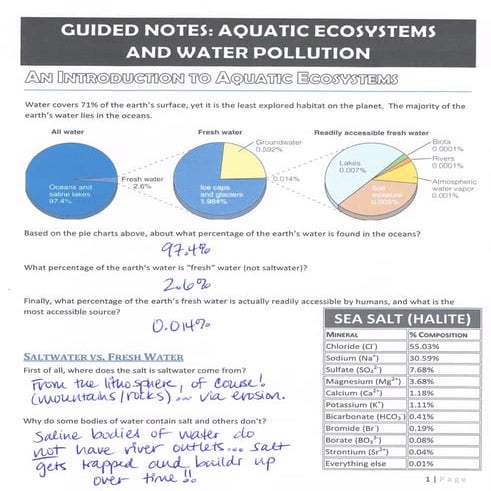 GUIDED NOTES: AQUATIC ECOSYSTEMS
AND WATER POLLUTION
AN INTRODUCTION TO AQUATIC ECOSYSTEMS
Water covers 71% of the earth's surface, yet it is the least explored habitat on the planet. The majority of the
earth's water lies in the oceans.
All water
Fresh water
Readily accessible fresh water
Oceans and
saline lakes
97.4%
Fresh water
2.6%
Groundwater
0.592%
Ice caps
and glaciers
1.984%
0.014%
Lakes
0.007%
Biota
0.0001%
Rivers
0.0001%
Atmospheric
water vapor
0.001%
Soil
moisture
0.005%
Based on the pie charts above, about what percentage of the earth's water is found in the oceans?
97.4%
What percentage of the earth's water is "fresh" water (not saltwater)?
2.6%
Finally, what percentage of the earth's fresh water is actually readily accessible by humans, and what is the
most accessible source?
0.014%
SALTWATER VS. FRESH WATER
First of all, where does the salt is saltwater come from?
From the lithosphere, of course!
(mountains/rocks)... via erosion.
Why do some bodies of water contain salt and others don't?
Saline bodies of water do
not have river outlets... salt
gets trapped and builds up
over time!!
SEA SALT (HALITE)
MINERAL % COMPOSITION
Chloride (Cl⁻) 55.03%
Sodium (Na⁺) 30.59%
Sulfate (SO₄²⁻) 7.68%
Magnesium (Mg²⁺) 3.68%
Calcium (Ca²⁺) 1.18%
Potassium (K⁺) 1.11%
Bicarbonate (HCO₃⁻) 0.41%
Bromide (Br⁻) 0.19%
Borate (BO₃³⁻) 0.08%
Strontium (Sr²⁺) 0.04%
Everything else 0.01%
1 | Page